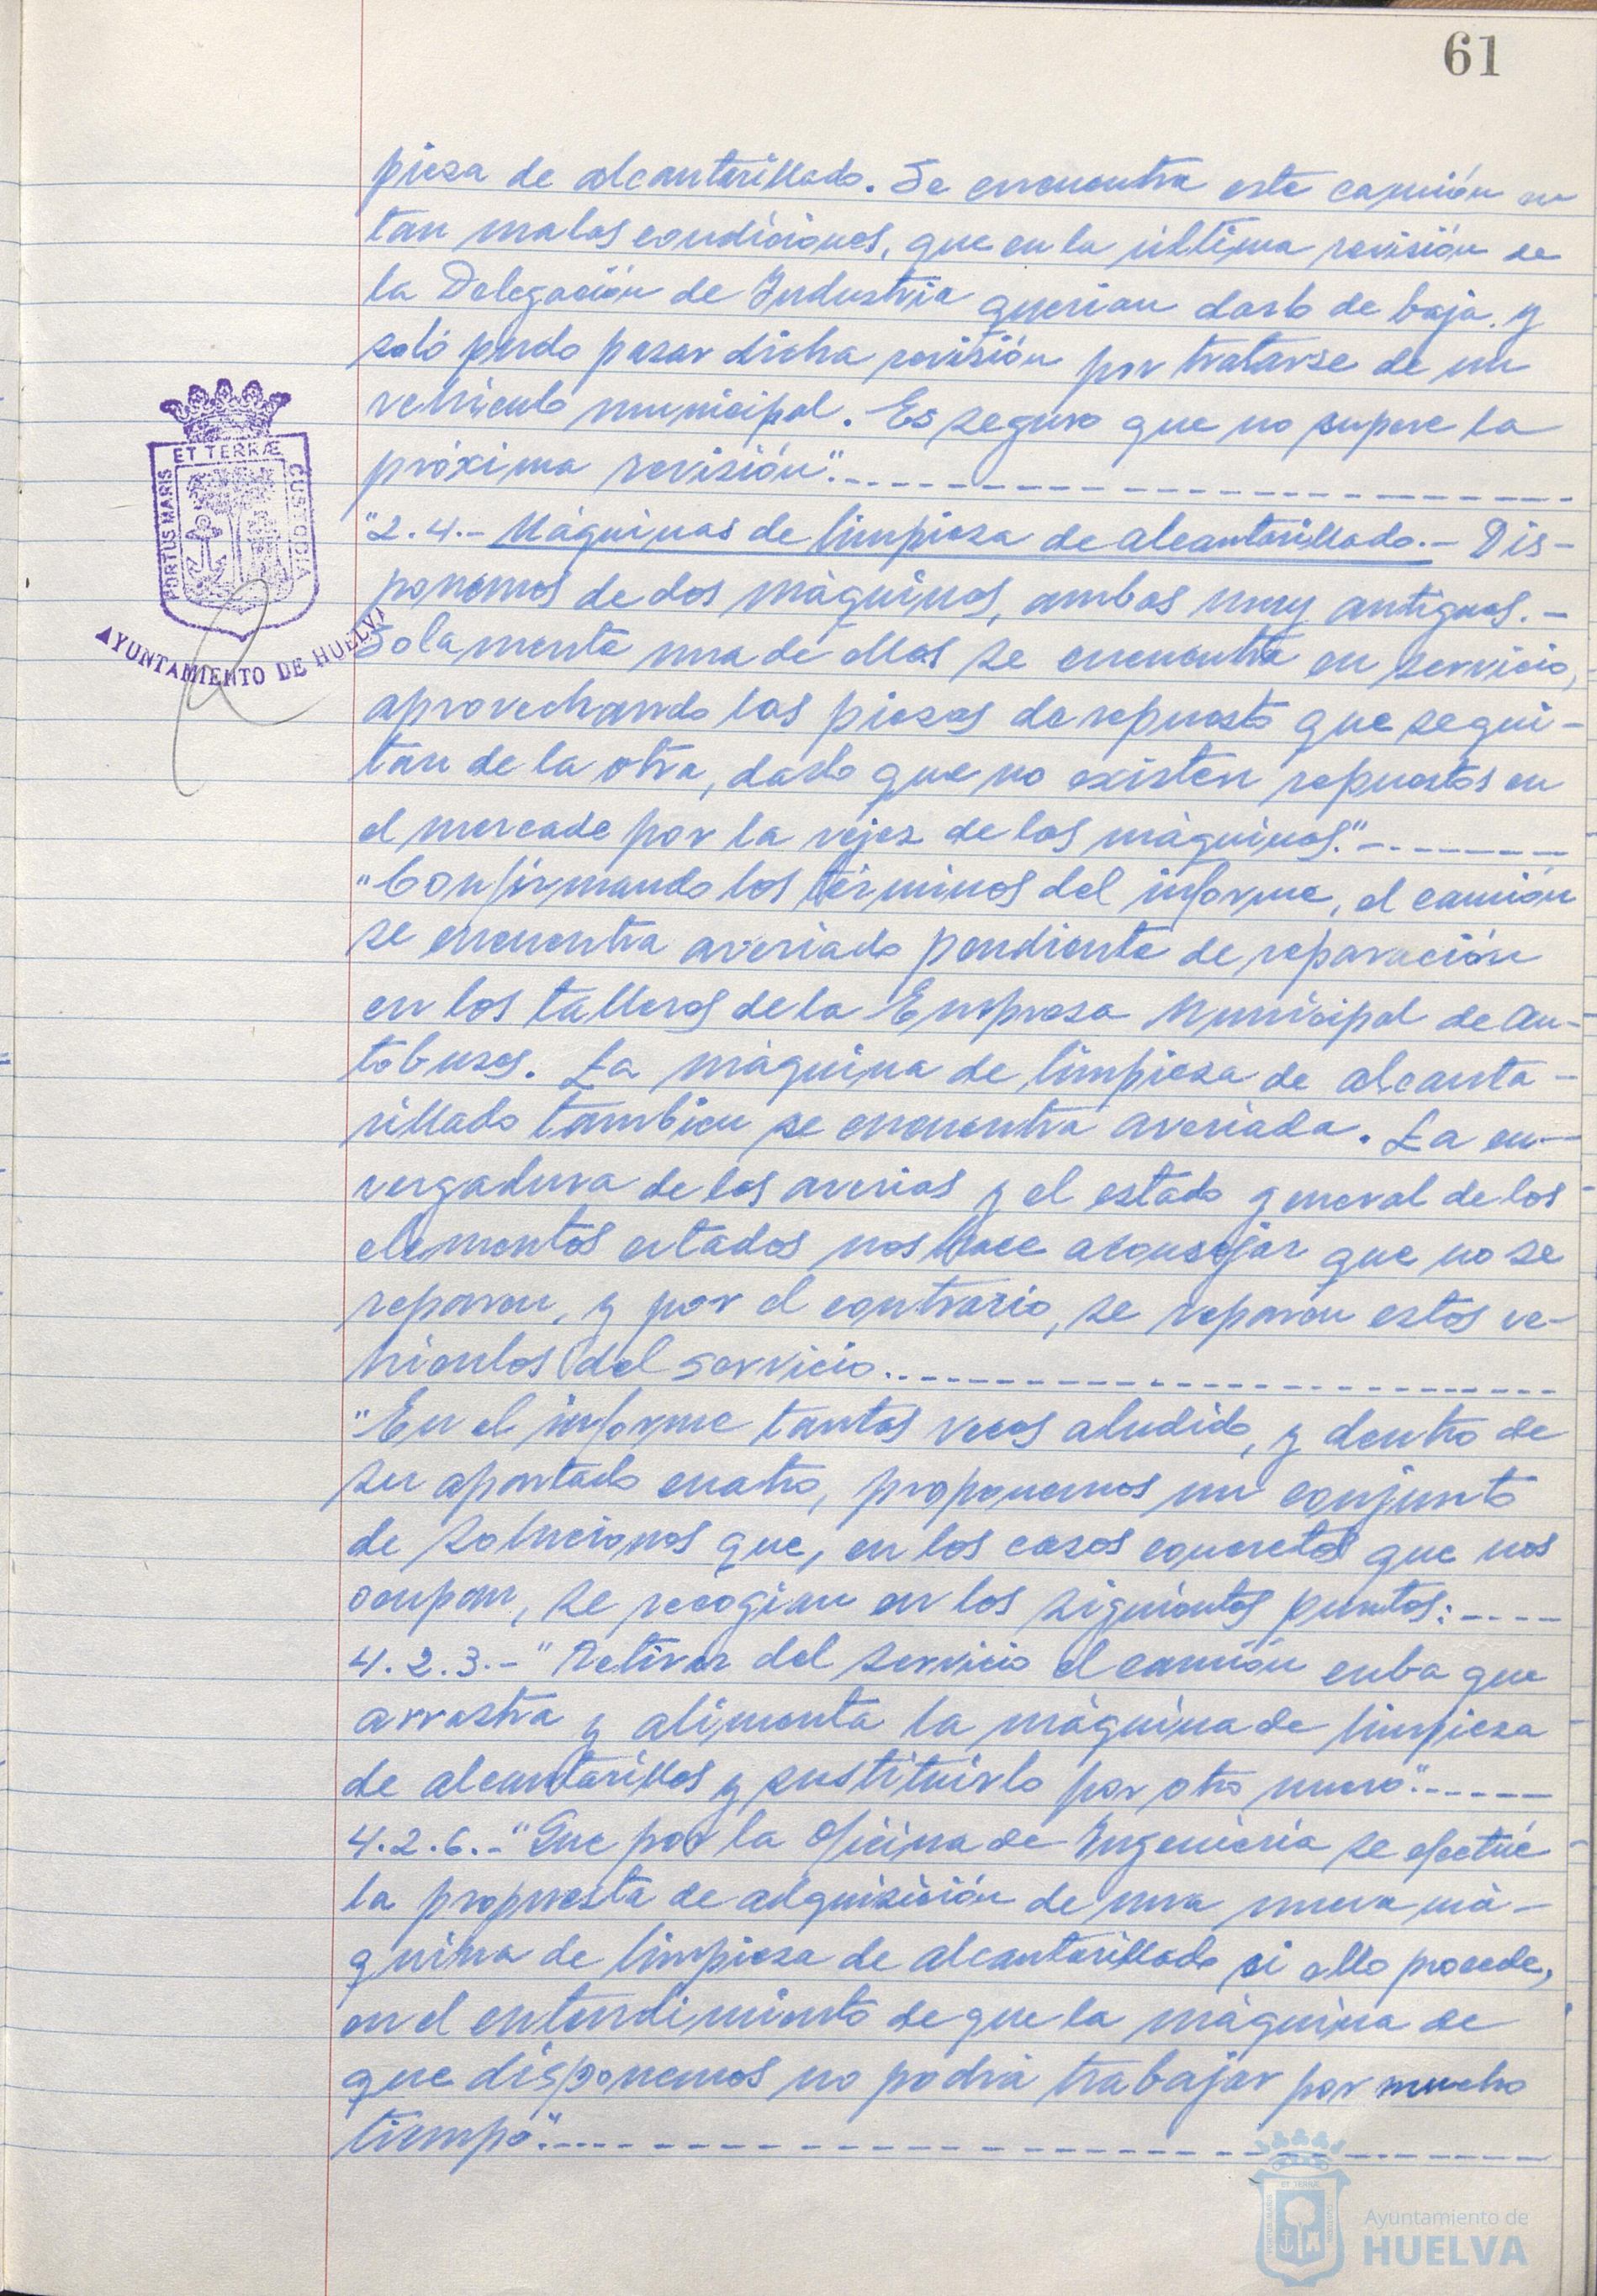 61
pieza de alcantarillado. Se encuentra este camión en
tan malas condiciones, que en la última revisión de
la Delegación de Industria querian darlo de baja, y
soló pudo pasar dicha revisión por tratarse de un
vehiculo municipal. Es seguro que no supere la
próxima revisión".
"2.4.- Máquinas de limpieza de alcantarillado.- Dis-
ponemos de dos máquinas, ambas muy antiguas.-
Solamente una de ellas se encuentra en servicio,
aprovechando las piezas de repuesto que se qui-
tan de la otra, dado que no existen repuestos en
el mercado por la vejez de las máquinas."
"Confirmando los términos del informe, el camión
se encuentra averiado pendiente de reparación
en los talleres de la Empresa Municipal de Au-
tobuses. La máquina de limpieza de alcanta-
rillado tambien se encuentra averiada. La en-
vergadura de las averias y el estado general de los
elementos citados nos hace aconsejar que no se
reparen, y por el contrario, se reparen estos ve-
hiculos del servicio.
"En el informe tantas veces aludido, y dentro de
su apartado cuatro, proponemos un conjunto
de soluciones que, en los casos concretos que nos
ocupan, se recogian en los siguientes puntos:
4.2.3.- "Retirar del servicio el camión cuba que
arrastra y alimenta la máquina de limpieza
de alcantarillas y sustituirlo por otro nuevo".
4.2.6.- "Que por la Oficina de Ingenieria se efectúe
la propuesta de adquisición de una nueva má-
quina de limpieza de alcantarillado si ello procede,
en el entendimiento de que la máquina de
que disponemos no podrá trabajar por mucho
tiempo".
PORTUS MARIS ET TERRÆ CUSTODIA
AYUNTAMIENTO DE HUELVA
Ayuntamiento de
HUELVA